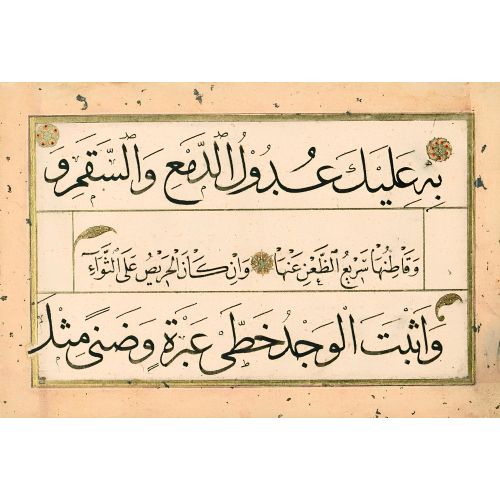 بِهِ عَلَيْكَ عُدُولُ الدَّمْعِ وَالسَّقَمِ وَ
وَقَاطِنُهَا سَرِيعُ الظَّعْنِ عَنْهَا وَاِنْ كَانَ الْحَرِيصُ عَلَى الثَّوَآءِ
وَاَثْبَتَ الْوَجْدُ خَطَّىْ عَبْرَةٍ وَضَنًى مِثْلَ